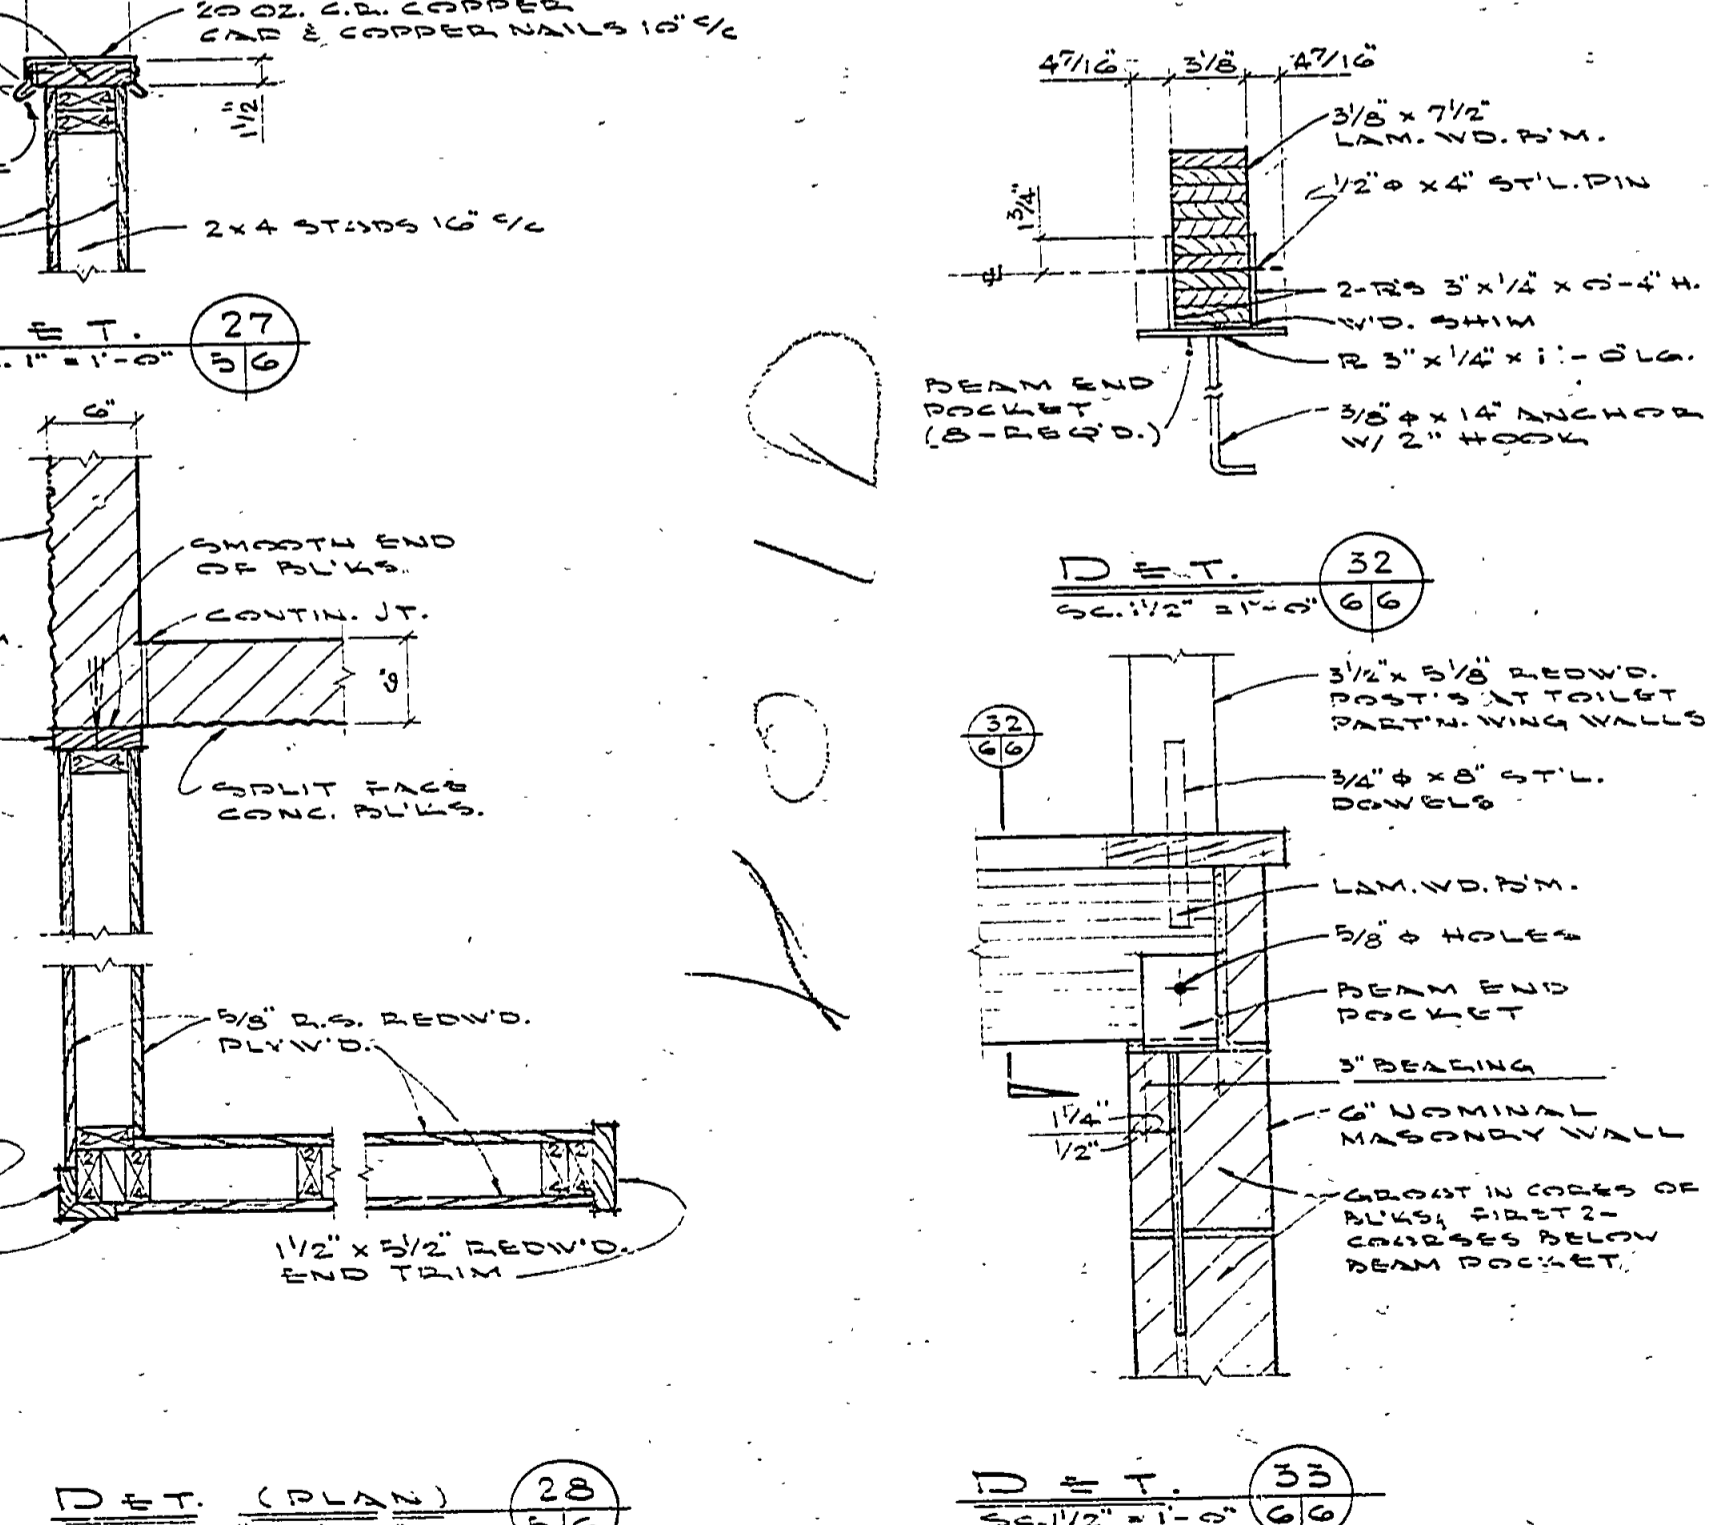 20 OZ. C.R. COPPER
CAP & COPPER NAILS 10" c/c
1 1/2"
2 x 4 STUDS 16" c/c
27
5 6
SC. 1" = 1'-0"
6"
SMOOTH END
OF BL'KS.
CONTIN. JT.
6"
SPLIT FACE
CONC. BL'KS.
5/8" R.S. REDW'D.
PLYW'D.
1 1/2" x 5 1/2" REDW'D.
END TRIM
DET. (PLAN)
28
4 7/16" 3 1/8" 4 7/16"
3 1/8" x 7 1/2"
LAM. WD. B'M.
1/2" ϕ x 4" ST'L. PIN
1 3/4"
℄
2-℞'S 3" x 1/4" x 0'-4" H.
W'D. SHIM
℞ 3" x 1/4" x 1'-0" LG.
BEAM END
POCKET
(8-REQ'D.)
3/8" ϕ x 14" ANCHOR
W/ 2" HOOK
DET.
32
6 6
SC. 1 1/2" = 1'-0"
3 1/2" x 5 1/8" REDW'D.
POST'S AT TOILET
PART'N. WING WALLS
32
6 6
3/4" ϕ x 8" ST'L.
DOWELS
LAM. WD. B'M.
5/8" ϕ HOLES
BEAM END
POCKET
3" BEARING
1 1/4"
1/2"
6" NOMINAL
MASONRY WALL
GROUT IN CORES OF
BLKS, FIRST 2-
COURSES BELOW
BEAM POCKET.
DET.
33
6 6
SC. 1 1/2" = 1'-0"